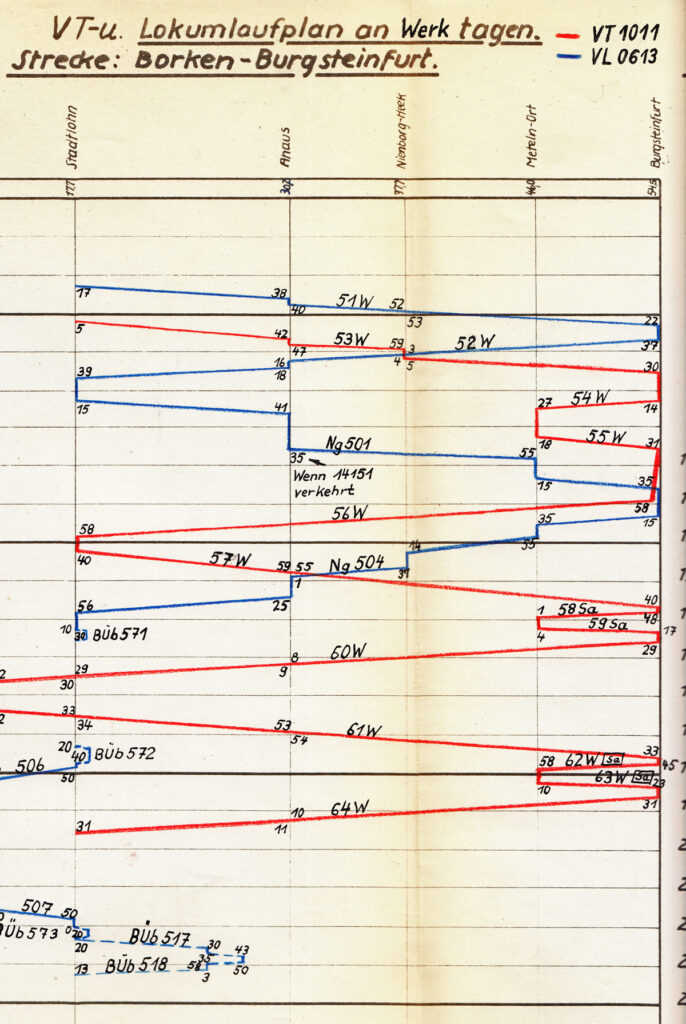 VT-u. Lokumlaufplan an Werktagen.
VT 1011
VL 0613
Strecke: Borken-Burgsteinfurt.
Stadtlohn
Ahaus
Nienborg-Heek
Meteln-Ort
Burgsteinfurt
17,7
30,2
37,7
46,0
54,5
17
38
40
51 W
52
53
22
5
42
47
53 W
59
3
52 W
37
39
16
18
4
5
30
15
41
27
54 W
14
Ng 501
18
55 W
31
35
55
15
35
Wenn 14151
verkehrt
56 W
58
58
35
15
40
57 W
59
55
Ng 504
14
31
35
1
56
25
40
1
58 Sa
48
10
30
BÜb 571
4
59 Sa
17
29
30
9
8
60 W
29
33
34
53
54
61 W
33
20
40
BÜb 572
58
62 W
Sa
45
506
50
10
63 W
Sa
23
31
31
11
10
64 W
507
50
BÜb 573
0
20
20
BÜb 517
30
43
13
BÜb 518
58
35
3
50